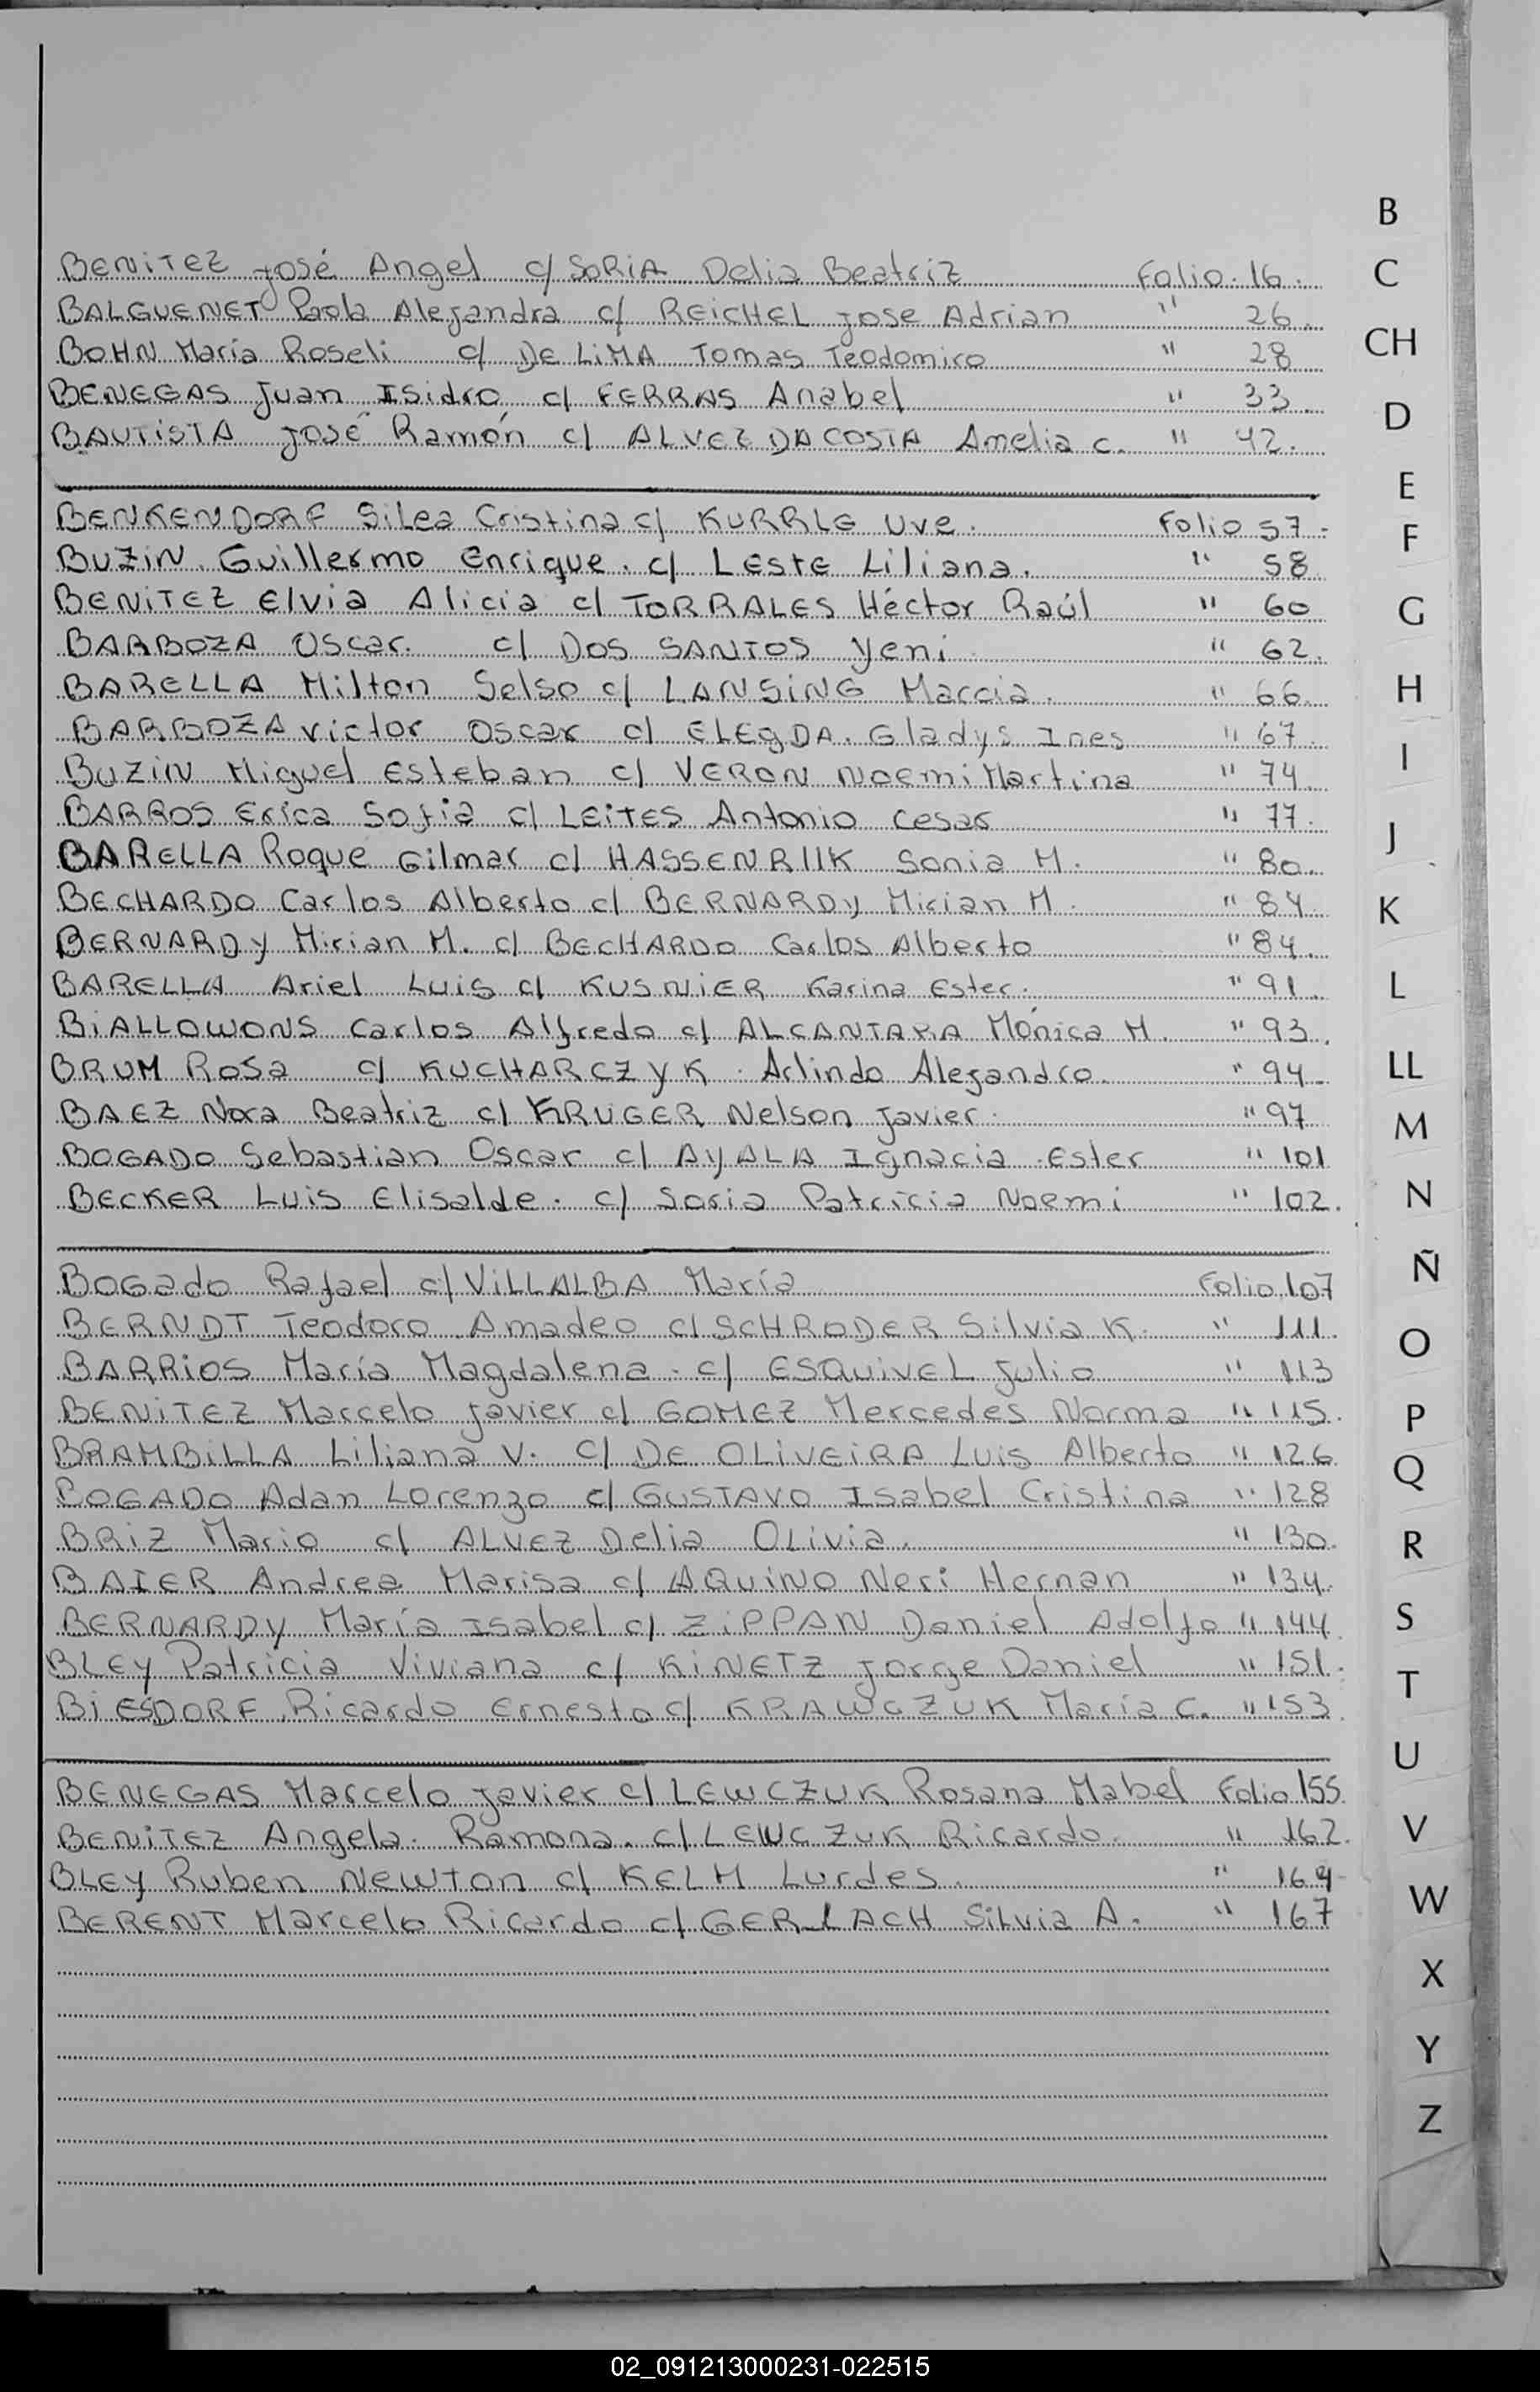 BENITEZ José Angel c/ SORIA Delia Beatriz Folio 16.
BALGUENET Paola Alejandra c/ REICHEL Jose Adrian " 26.
BOHN María Roseli c/ DE LIMA Tomas Teodomiro " 28
BENEGAS Juan Isidro c/ FERRAS Anabel " 33.
BAUTISTA José Ramón c/ ALVEZ DA COSTA Amelia C. " 42.
BENKENDORF Silea Cristina c/ KURRLE Uve. Folio 57.
BUZIN Guillermo Enrique. c/ LESTE Liliana. " 58
BENITEZ Elvia Alicia c/ TORRALES Héctor Raúl " 60
BARBOZA Oscar. c/ DOS SANTOS Yeni " 62.
BARELLA Milton Selso c/ LANSING Marcia. " 66.
BARBOZA Victor Oscar c/ ELEGDA. Gladys Ines " 67.
BUZIN Miguel Esteban c/ VERON Noemi Martina " 74.
BARROS Erica Sofia c/ LEITES Antonio Cesar " 77.
BARELLA Roque Gilmar c/ HASSENRIIK Sonia M. " 80.
BECHARDO Carlos Alberto c/ BERNARDY Mirian M. " 84.
BERNARDY Mirian M. c/ BECHARDO Carlos Alberto " 84.
BARELLA Ariel Luis c/ KUSNIER Karina Ester. " 91.
BIALLOWONS Carlos Alfredo c/ ALCANTARA Mónica M. " 93.
BRUM Rosa c/ KUCHARCZYK Arlindo Alejandro. " 94.
BAEZ Nora Beatriz c/ KRUGER Nelson Javier. " 97
BOGADO Sebastian Oscar c/ AYALA Ignacia Ester " 101
BECKER Luis Elisalde. c/ Soria Patricia Noemi " 102.
BOGado Rafael c/ VILLALBA María Folio 107
BERNDT Teodoro Amadeo c/ SCHRODER Silvia K. " 111.
BARRIOS María Magdalena. c/ ESQUIVEL Julio " 113
BENITEZ Marcelo Javier c/ GOMEZ Mercedes Norma " 115.
BRAMBILLA Liliana V. c/ DE OLIVEIRA Luis Alberto " 126
BOGADO Adan Lorenzo c/ GUSTAVO Isabel Cristina " 128
BRIZ Mario c/ ALVEZ Delia Olivia. " 130.
BAIER Andrea Marisa c/ AQUINO Neri Hernan " 134.
BERNARDY María Isabel c/ ZIPPAN Daniel Adolfo " 144.
BLEY Patricia Viviana c/ KINETZ Jorge Daniel " 151.
BIESDORF Ricardo Ernesto c/ KRAWCZUK María C. " 153.
BENEGAS Marcelo Javier c/ LEWCZUK Rosana Mabel Folio 155.
BENITEZ Angela. Ramona. c/ LEWCZUK Ricardo. " 162.
BLEY Ruben Newton c/ KELM Lurdes. " 164
BERENT Marcelo Ricardo c/ GERLACH Silvia A. " 167
B
C
CH
D
E
F
G
H
I
J
K
L
LL
M
N
Ñ
O
P
Q
R
S
T
U
V
W
X
Y
Z
02_091213000231-022515